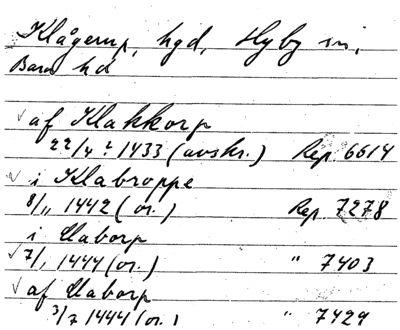 Klågerup, hgd, Hyby sn,
Bara hd
af Klakkorp
22/4 1433 (avskr.) Rep. 6614
i Klabroppe
8/11 1442 (or.) Rep. 7278
i Claborp
7/1 1444 (or.) " 7403
af Claborp
3/7 1444 (or.) " 7429